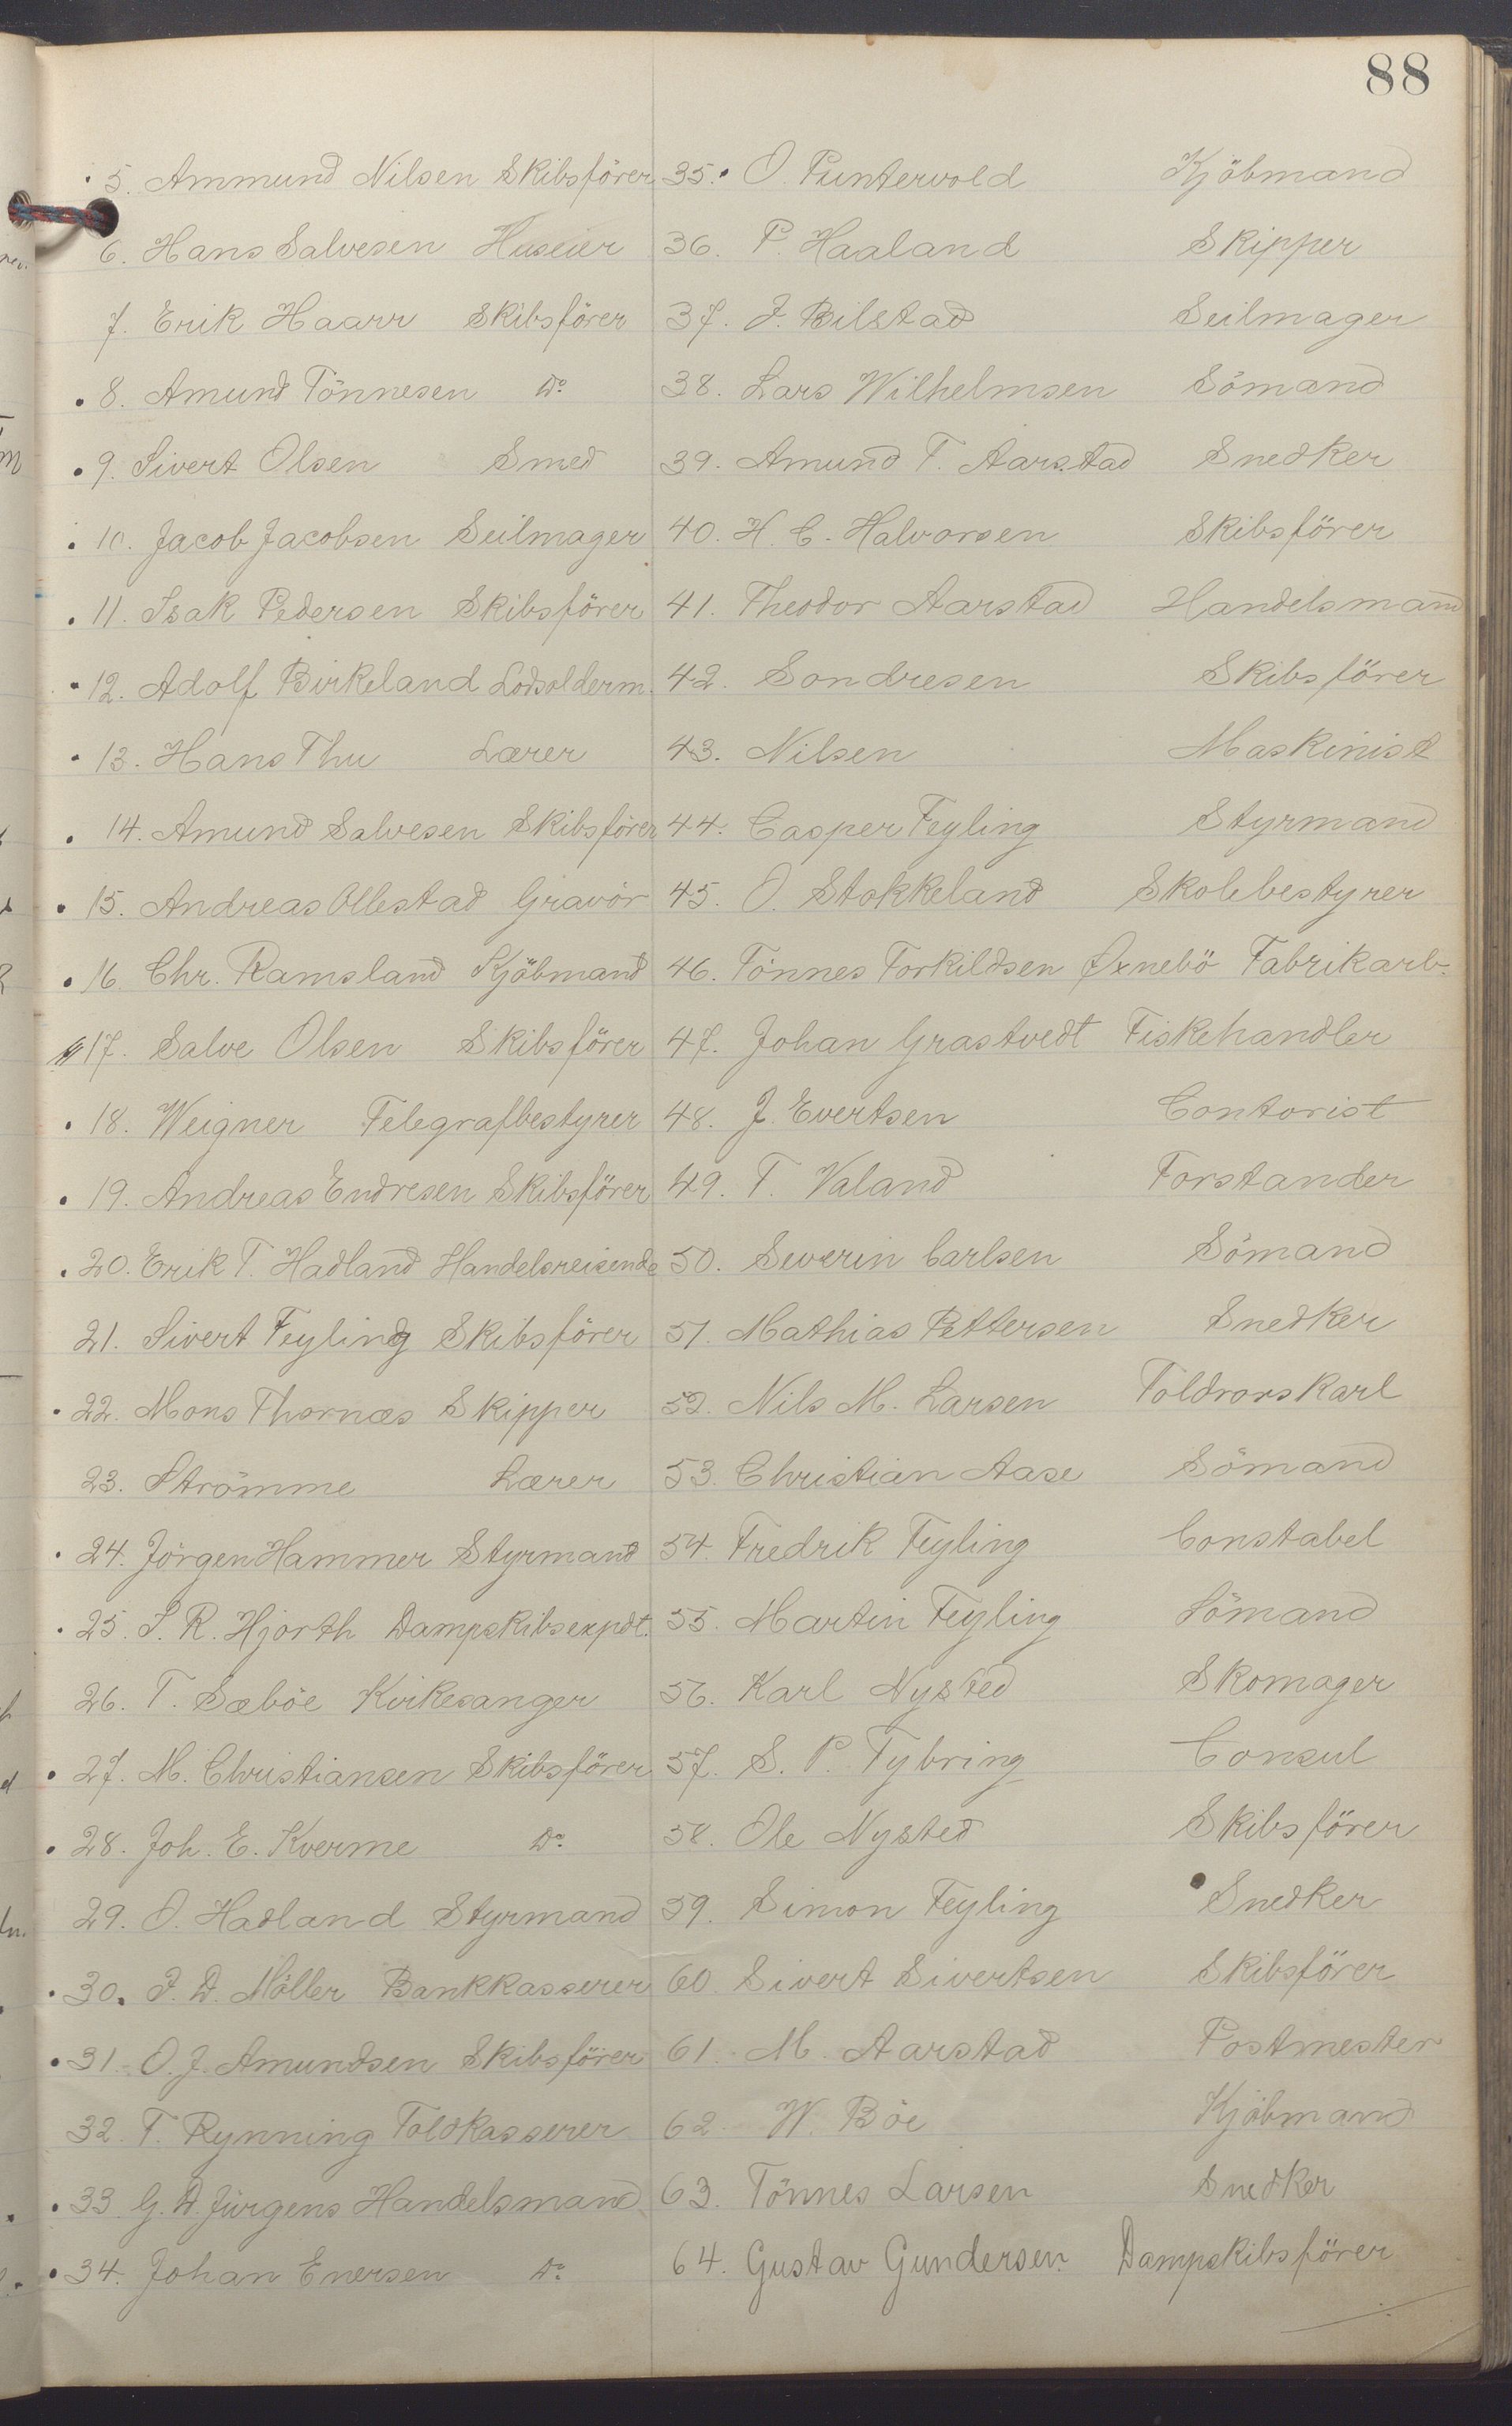 88
5. Ammund Nilsen Skibsförer
6. Hans Salvesen Huseier
7. Erik Haarr Skibsförer
8. Amund Tönnesen Do
9. Sivert Olsen Smed
10. Jacob Jacobsen Seilmager
11. Isak Pedersen Skibsförer
12. Adolf Birkeland Lodsolderm.
13. Hans Thu Lærer
14. Amund Salvesen Skibsförer
15. Andreas Ollestad Gravör
16. Chr. Ramsland Kjöbmand
17. Salve Olsen Skibsförer
18. Weigner Telegrafbestyrer
19. Andreas Endresen Skibsförer
20. Erik T. Hadland Handelsreisende
21. Sivert Feyling Skibsförer
22. Mons Thornæs Skipper
23. Strömme Lærer
24. Jörgen Hammer Styrmand
25. S. R. Hjorth Dampskibsexpdt.
26. T. Sæböe Kirkesanger
27. M. Christiansen Skibsförer
28. Joh. E. Kverme Do
29. O. Hadland Styrmand
30. J. D. Möller Bankkasserer
31. O. J. Amundsen Skibsförer
32. T. Rynning Toldkasserer
33. G. D. Jürgens Handelsmand
34. Johan Enersen Do
35. O. Puntervold Kjöbmand
36. P. Haaland Skipper
37. J. Bilstad Seilmager
38. Lars Wilhelmsen Sömand
39. Amund T. Aarstad Snedker
40. H. C. Halvorsen Skibsförer
41. Theodor Aarstad Handelsmand
42. Sondresen Skibsförer
43. Nilsen Maskinist
44. Casper Feyling Styrmand
45. O. Stokkeland Skolebestyrer
46. Tönnes Torkildsen Øxnebö Fabrikarb.
47. Johan Grastvedt Fiskehandler
48. J. Evertsen Contorist
49. T. Valand Forstander
50. Severin Carlsen Sömand
51. Mathias Pettersen Snedker
52. Nils M. Larsen Toldrorskarl
53. Christian Aase Sömand
54. Fredrik Feyling Constabel
55. Martin Feyling Sömand
56. Karl Nysted Skomager
57. S. P. Tybring Consul
58. Ole Nysted Skibsförer
59. Simon Feyling Snedker
60 Sivert Sivertsen Skibsförer
61. M. Aarstad Postmester
62. W. Böe Kjöbmand
63. Tönnes Larsen Snedker
64. Gustav Gundersen. Dampskibsförer